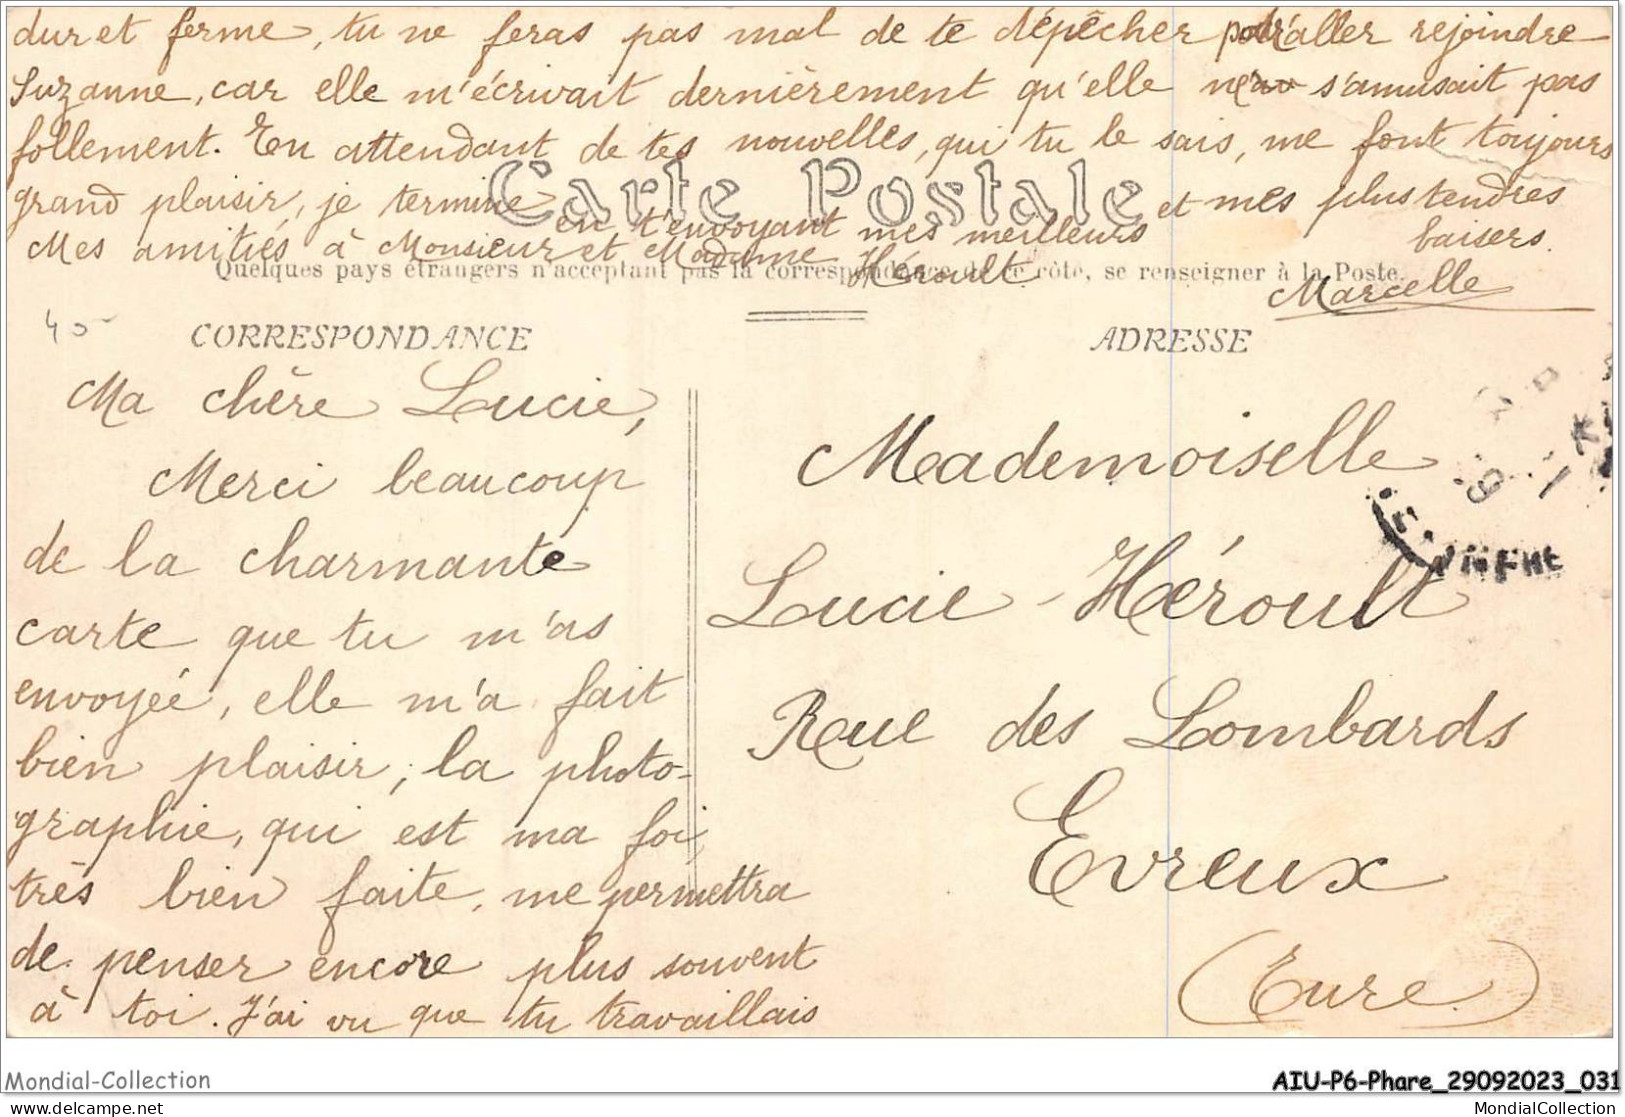 dur et ferme, tu ne feras pas mal de te dépêcher pour aller rejoindre
Suzanne, car elle m'écrivait dernièrement qu'elle ne s'amusait pas
follement. En attendant de tes nouvelles, qui tu le sais, me font toujours
grand plaisir, je termine en t'envoyant mes meilleurs et mes plus tendres
baisers.
Mes amitiés à Monsieur et Madame Héroult
Marcelle
Carte Postale
Quelques pays étrangers n'acceptant pas la correspondance de ce côte, se renseigner à la Poste.
40
CORRESPONDANCE
Ma chère Lucie,
Merci beaucoup
de la charmante
carte que tu m'as
envoyée, elle m'a fait
bien plaisir, la photo-
graphie, qui est ma foi,
très bien faite, me permettra
de penser encore plus souvent
à toi. J'ai vu que tu travaillais
ADRESSE
Mademoiselle
Lucie Héroult
Rue des Lombards
Evreux
(Eure)
Mondial-Collection
AIU-P6-Phare_29092023_031
delcampe.net
MondialCollection